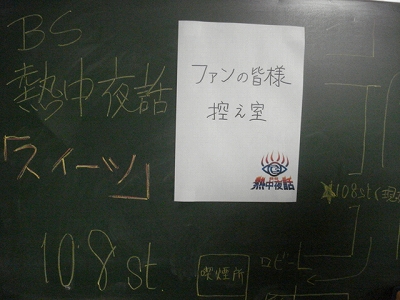 BS
熱中夜話
「スイーツ」
108 st.
ファンの皆様
控え室
熱中夜話
108st(現
喫煙所
ロビー